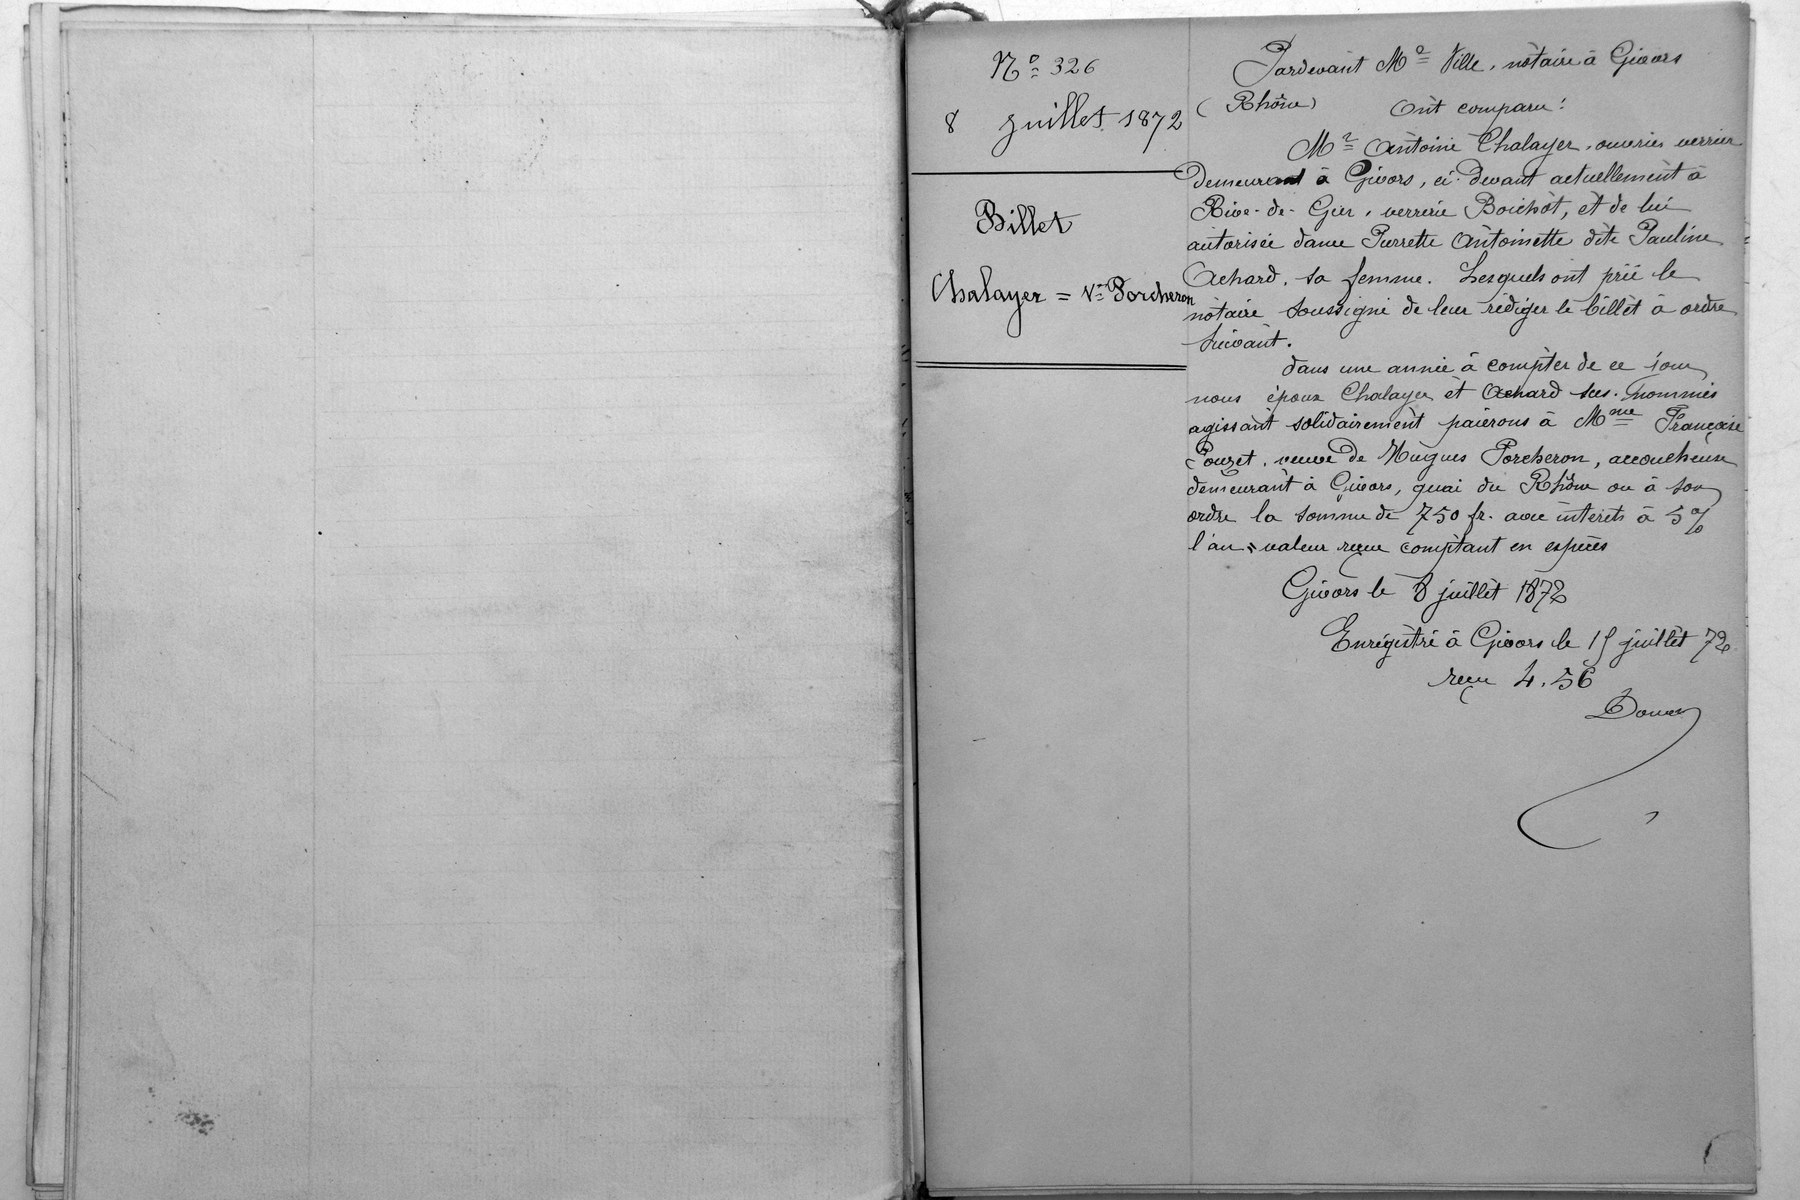 No 326
8 Juillet 1872
Billet
Chalayer = Ve Porcheron
Pardevant Me Ville, notaire à Givors
(Rhône) Ont comparu :
Mr Antoine Chalayer, ouvrier verrier
demeurant à Givors, ci-devant actuellement à
Rive-de-Gier, verrerie Boichot, et de lui
autorisée dame Pierrette Antoinette dite Pauline
Achard, sa femme. Lesquels ont prié le
notaire soussigné de leur rédiger le billet à ordre
suivant.
dans une année à compter de ce jour
nous époux Chalayer et Achard sus-nommés
agissant solidairement paierons à Mme Française
Pouzet, veuve de Hugues Porcheron, accoucheuse
demeurant à Givors, quai du Rhône ou à son
ordre la somme de 750 fr. avec intérêts à 5%
l'an, valeur reçue comptant en espèces
Givors le 8 juillet 1872
Enregistré à Givors le 15 juillet 72
reçu 4.56